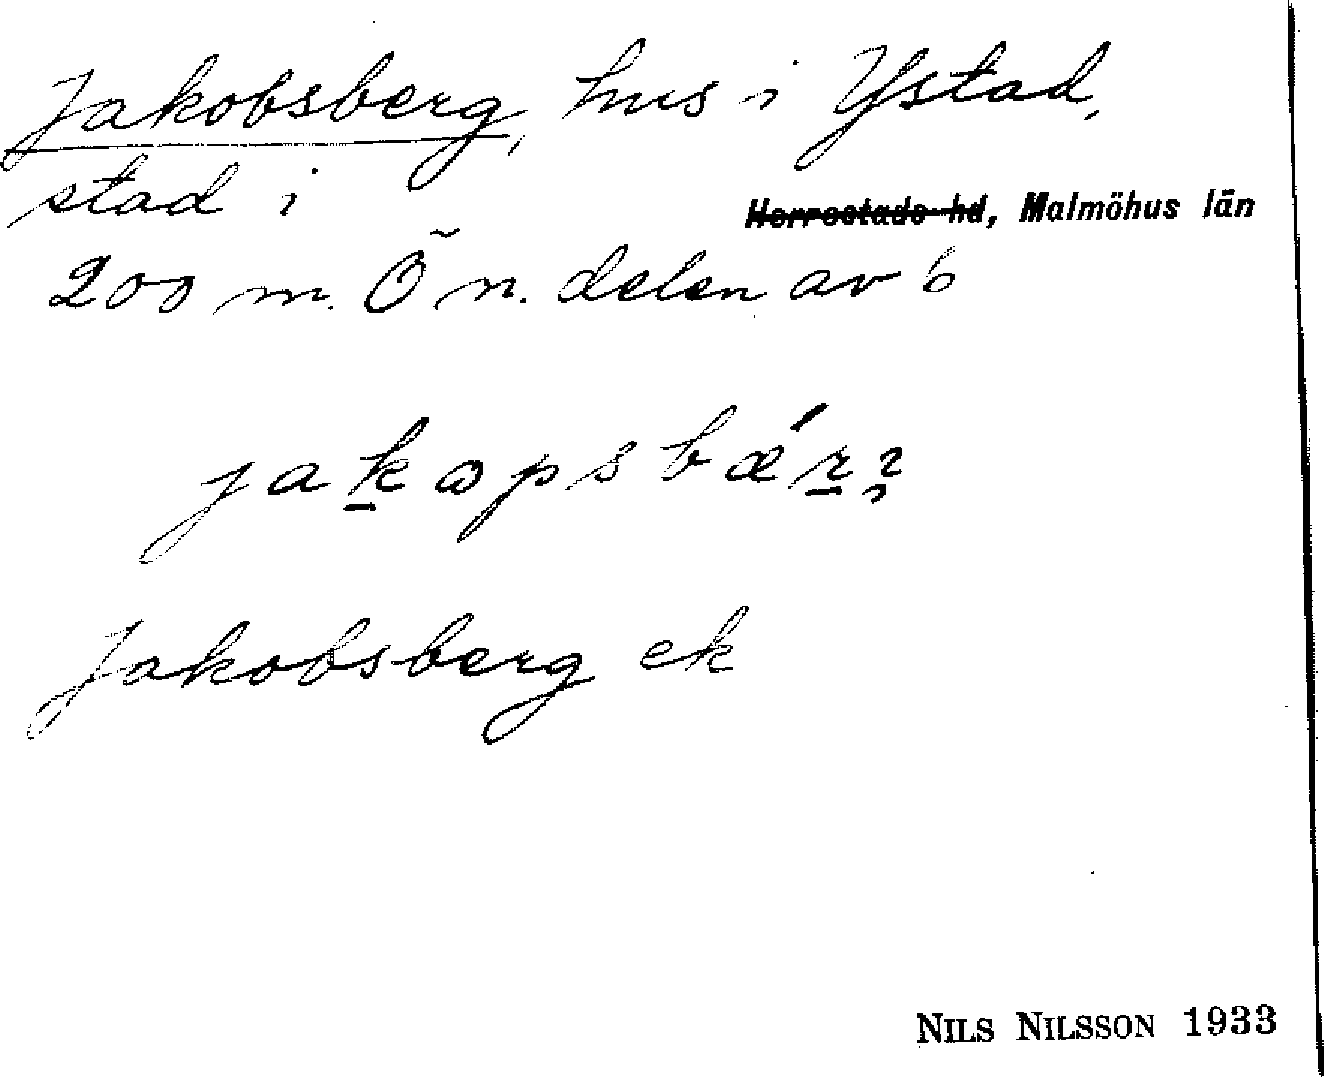 Jakobsberg, hus i Ystad,
stad i
Herrestads hd, Malmöhus län
200 m. Ö n. delen av 6
jakopsbǽr
Jakobsberg ek
NILS NILSSON 1933